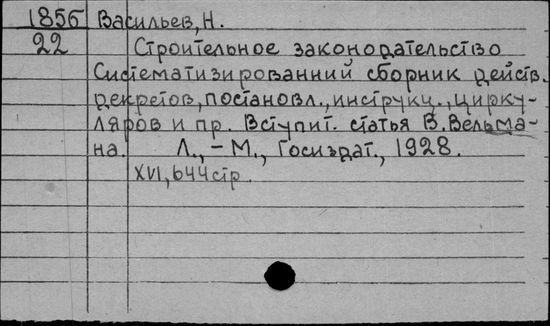 1856 Васильев, Н.
22 Строительное законодательство
Систематизированний сборник действ.
декретов, постановл., инструкц., цирку-
ляров и пр. Вступит. статья В. Вельма-
на. Л., – М., Госиздат., 1928.
XVI, 644стр.